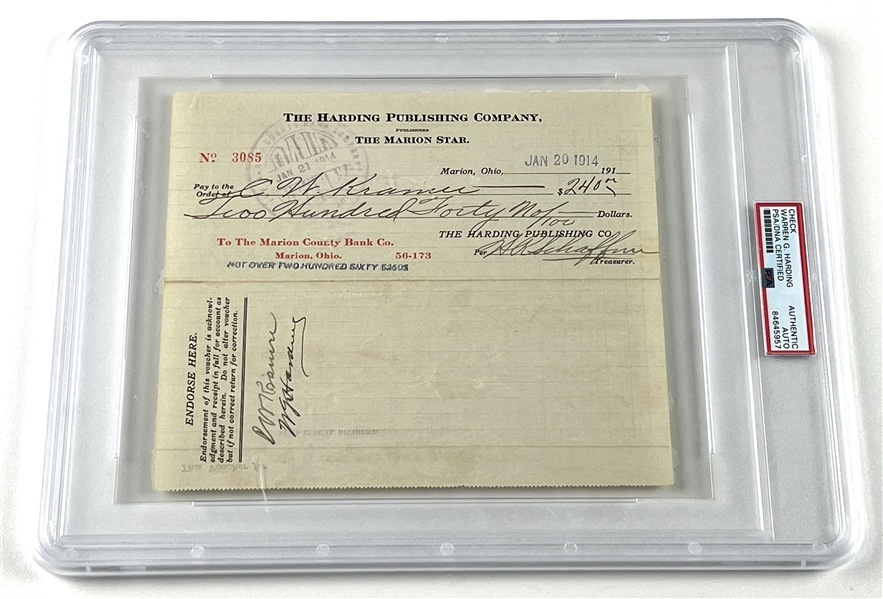 THE HARDING PUBLISHING COMPANY,
PUBLISHERS
THE MARION STAR.
No 3085
PAID
JAN 21 1914
Marion, Ohio, JAN 20 1914 191
Pay to the
Order of C. W. Kramer $240 no
Two Hundred Forty No/100 Dollars.
THE HARDING PUBLISHING CO.
To The Marion County Bank Co.
Marion, Ohio. 56-173
Per H A Schaffner
Treasurer.
NOT OVER TWO HUNDRED SIXTY $260$
ENDORSE HERE.
Endorsement of this voucher is acknowl-
edgment and receipt in full for account as
described herein. Do not alter voucher
but if not correct return for correction.
C W Kramer
W G Harding
This Voucher for
CHECK
WARREN G. HARDING
PSA/DNA CERTIFIED
PSA
AUTHENTIC
AUTO
84645957